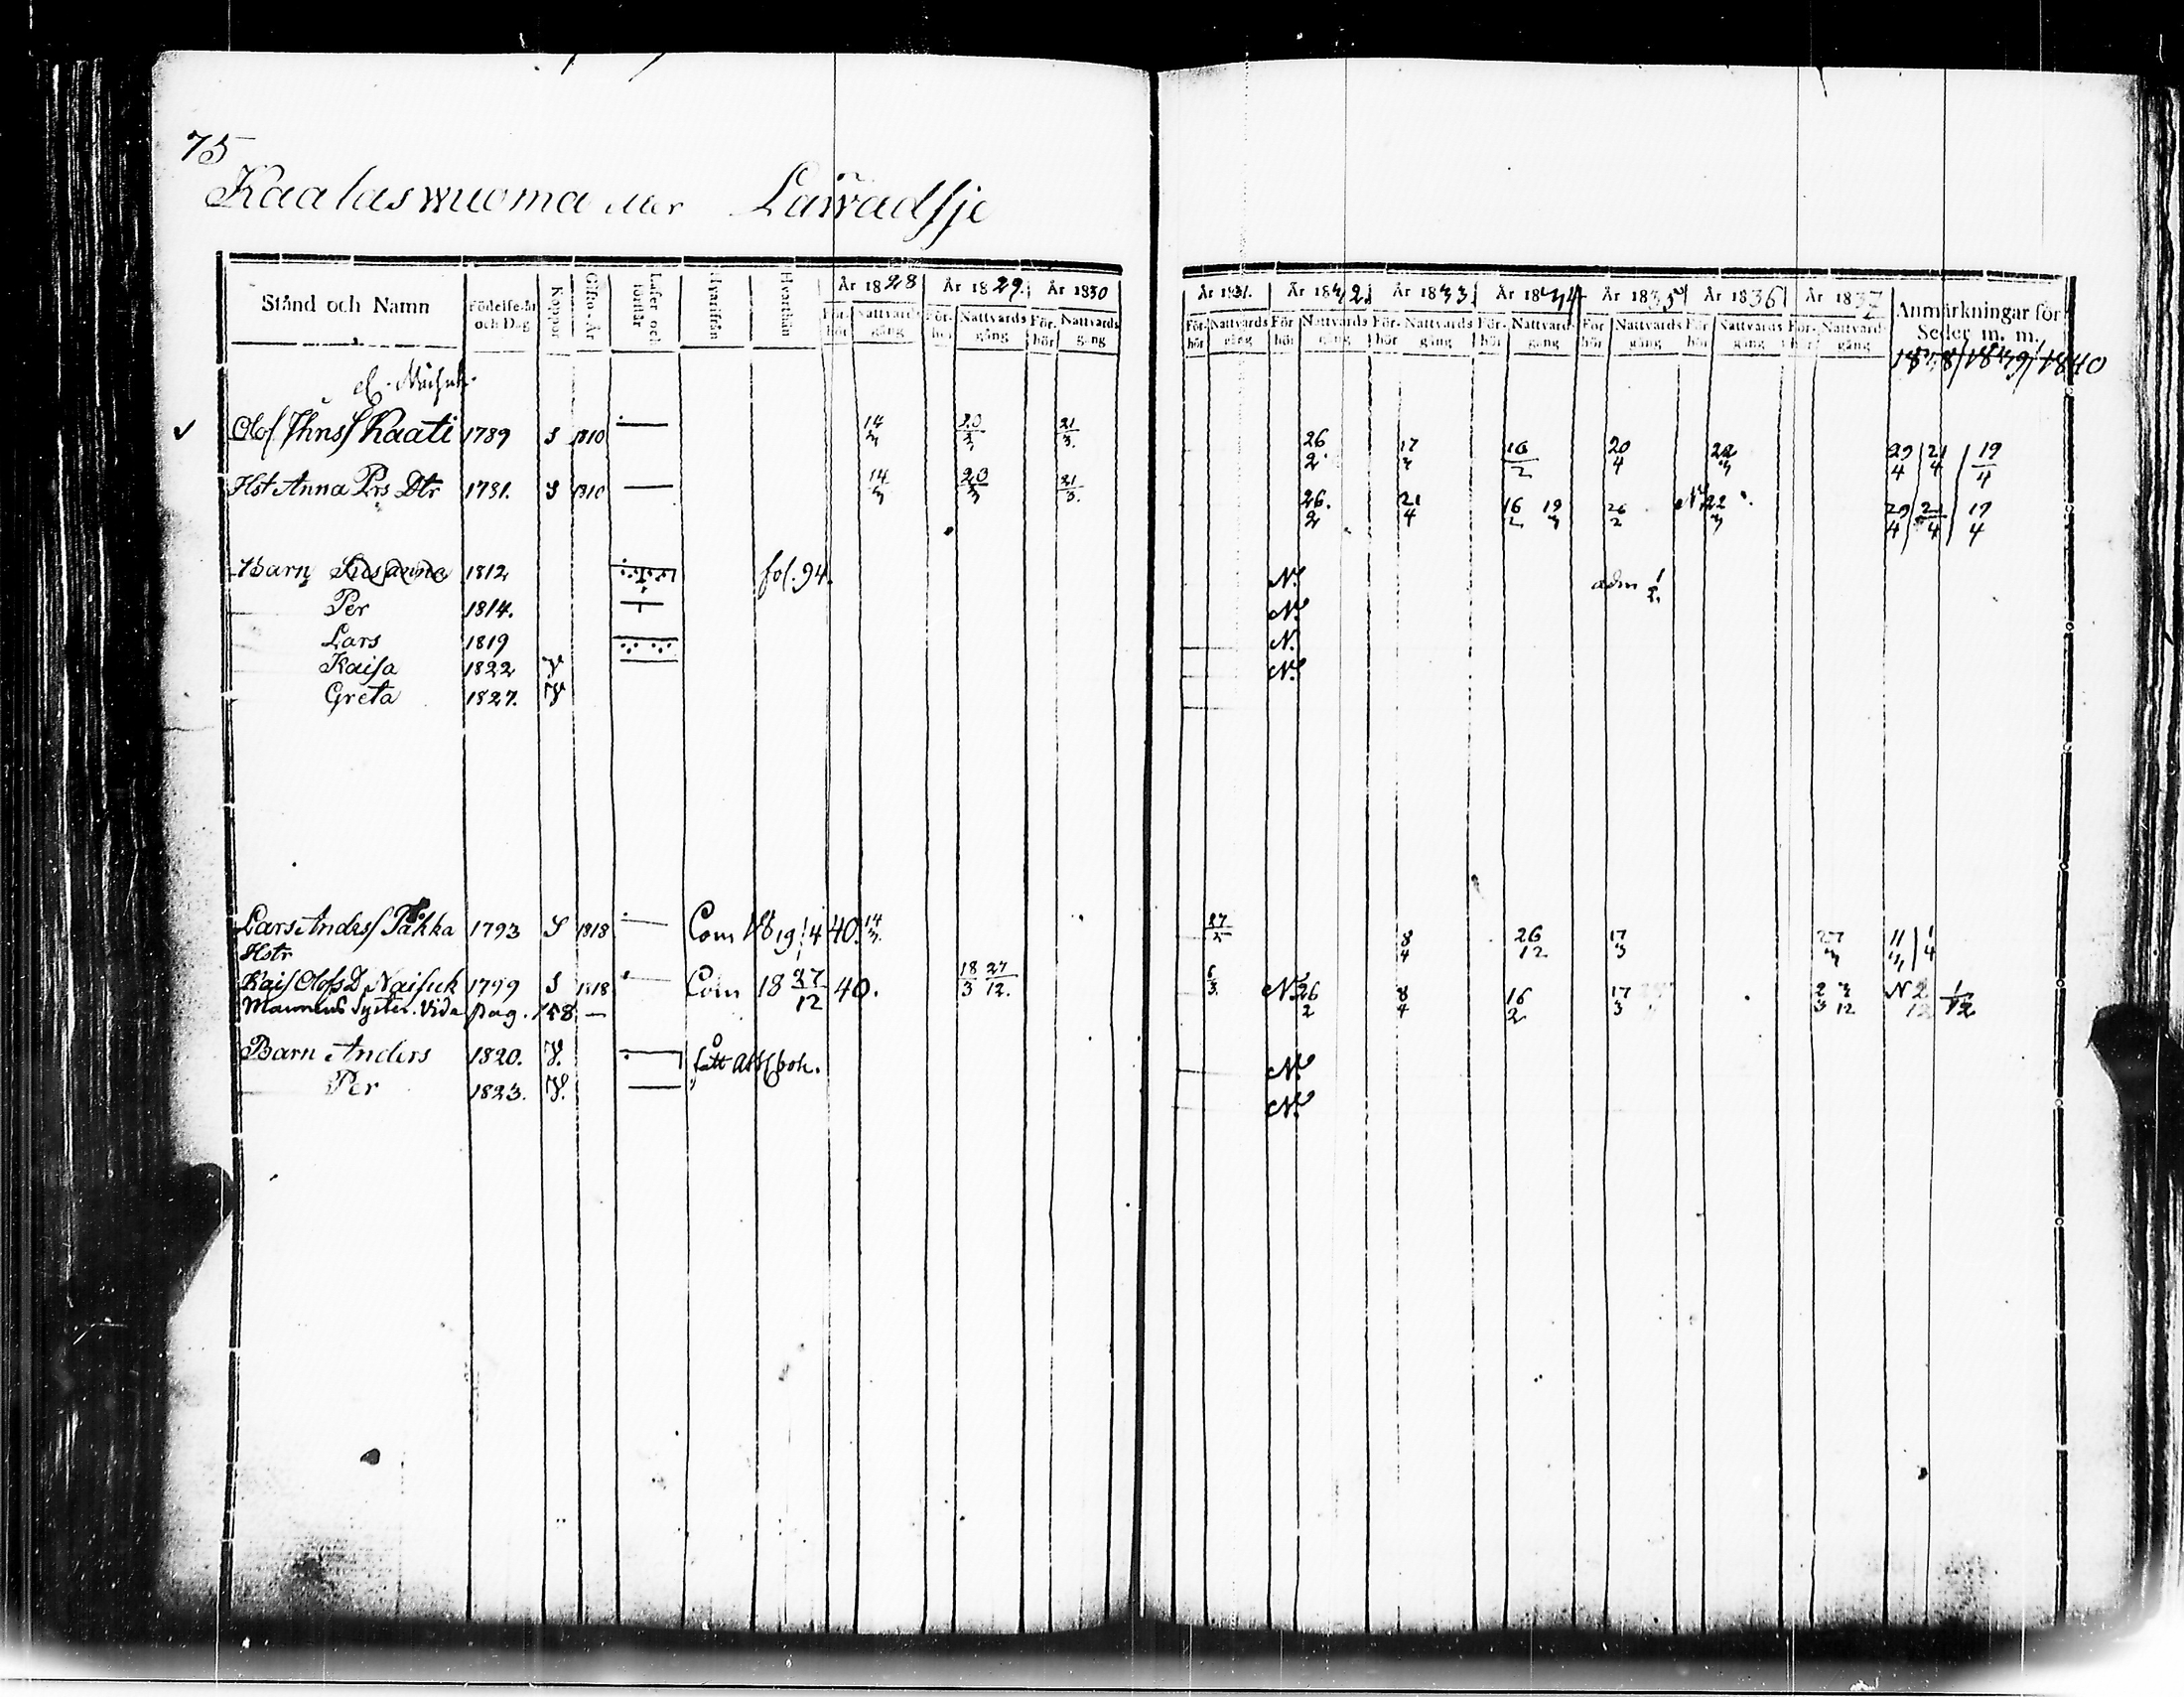 75
Kaalaswuoma eller Lawadsje
Stånd och Namn Födelse-år och Dag Koppor Gifto-År Läser och förstår Hvarifrån Hvarthän År 1828 År 1829. År 1830 År 1831. År 1832. År 1833 År 1834 År 1835 År 1836 År 1837 Anmärkningar för Seder m. m.
För-hör Nattvards gång För-hör Nattvards gång För-hör Nattvards gång För-hör Nattvards gång För-hör Nattvards gång För-hör Nattvards gång För-hör Nattvards gång För-hör Nattvards gång För-hör Nattvards gång För-hör Nattvards gång 1838/1839/1840
Olof Jhnss Kaati 1789 S 1810 14/3 20/3 21/3. 26/2 17/3 16/2 20/4 22/3 29/4 / 21/4 / 19/4
Hst Anna Prs Dtr 1781. S 1810 14/3 20/3 21/3. 26./2 21/4 16/2 19/3 26/2 N 22/3 29/4 / 21/4 / 17/4
Barn Susanna 1812 fol. 94. N. adm 1/2.
Per 1814. N.
Lars 1819 N.
Kaisa 1822 V N.
Greta 1827. V
Lars Anders Påkka 1793 S 1818 Com 18 19/4 40. 14/3. 27/2 8/4 26/12 17/3 27/3 11/3 / 1/4
Hstr
Kais Olofs D Naisuk 1799 S 1818 Com 18 27/12 40. 18/3 27/12. 6/3. N. 26/2 8/4 16/2 17/3 2/3 3/12 N 2/12 1/12
Mannens Syster. Vide pag. 158 —
Barn Anders 1820. V. fått Attst bok. N.
Per 1823. V. N.